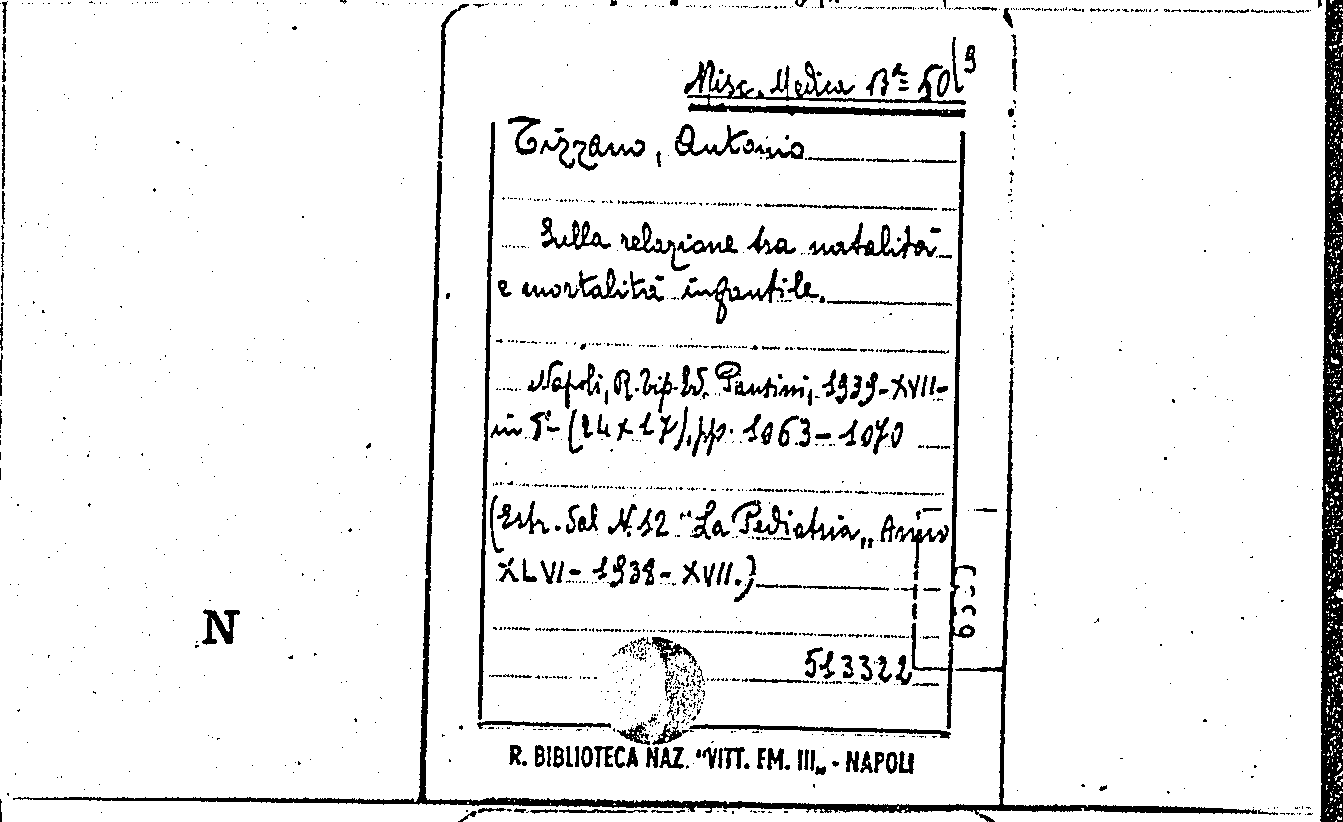 Misc. Medica Bª 50(9
Tizzano, Antonio
Sulla relazione tra natalità
e mortalità infantile.
Napoli, R. Tip. Ed. Pansini, 1939-XVII-
in 8º- (24x17), pp. 1063-1070
(Estr. dal N.12 "La Pediatria„ Anno
XLVI- 1938- XVII.)
N
513322
R. BIBLIOTECA NAZ. "VITT. EM. III„ - NAPOLI